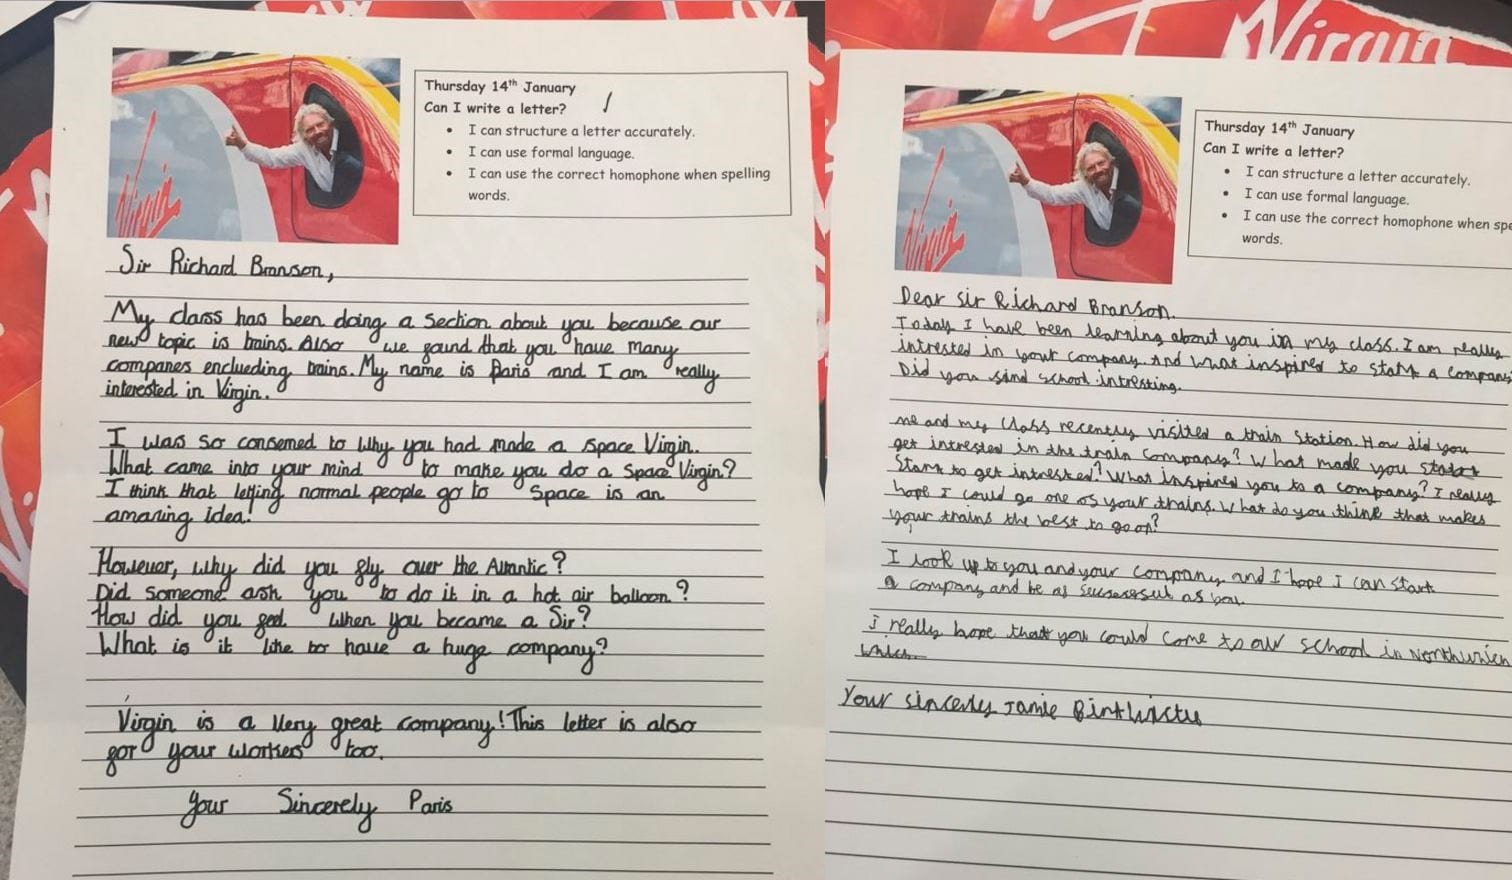 Virgin
Thursday 14th January
Can I write a letter?
• I can structure a letter accurately.
• I can use formal language.
• I can use the correct homophone when spelling
words.
Sir Richard Branson,
My class has been doing a section about you because our
new topic is trains. Also we found that you have many
companes enclueding trains. My name is Paris and I am really
interested in Virgin.
I was so consemed to Why you had made a space Virgin.
What came into your mind to make you do a space Virgin?
I think that letting normal people go to Space is an
amazing idea!
However, why did you fly over the Atlantic?
Did someone ask you to do it in a hot air balloon?
How did you feel When you became a Sir?
What is it like to have a huge company?
Virgin is a Very great company! This letter is also
for your workers too.
Your Sincerely Paris
Virgin
Virgin
Thursday 14th January
Can I write a letter?
• I can structure a letter accurately.
• I can use formal language.
• I can use the correct homophone when spe
words.
Dear Sir Richard Branson.
Today I have been learning about you in my class. I am really
intrested in your company. And what inspired to start a company
Did you find school intresting.
me and my class recently visited a train Station. How did you
get intrested in the train company? What made you start
Start to get intrested? What inspired you to a company? I really
hope I could go one of your trains. What do you think that makes
your trains the best to go on?
I look up to you and your company and I hope I can start
a company and be as as you.
I really hope that you could come to our school in Northwich
which
Your sincerly Jamie